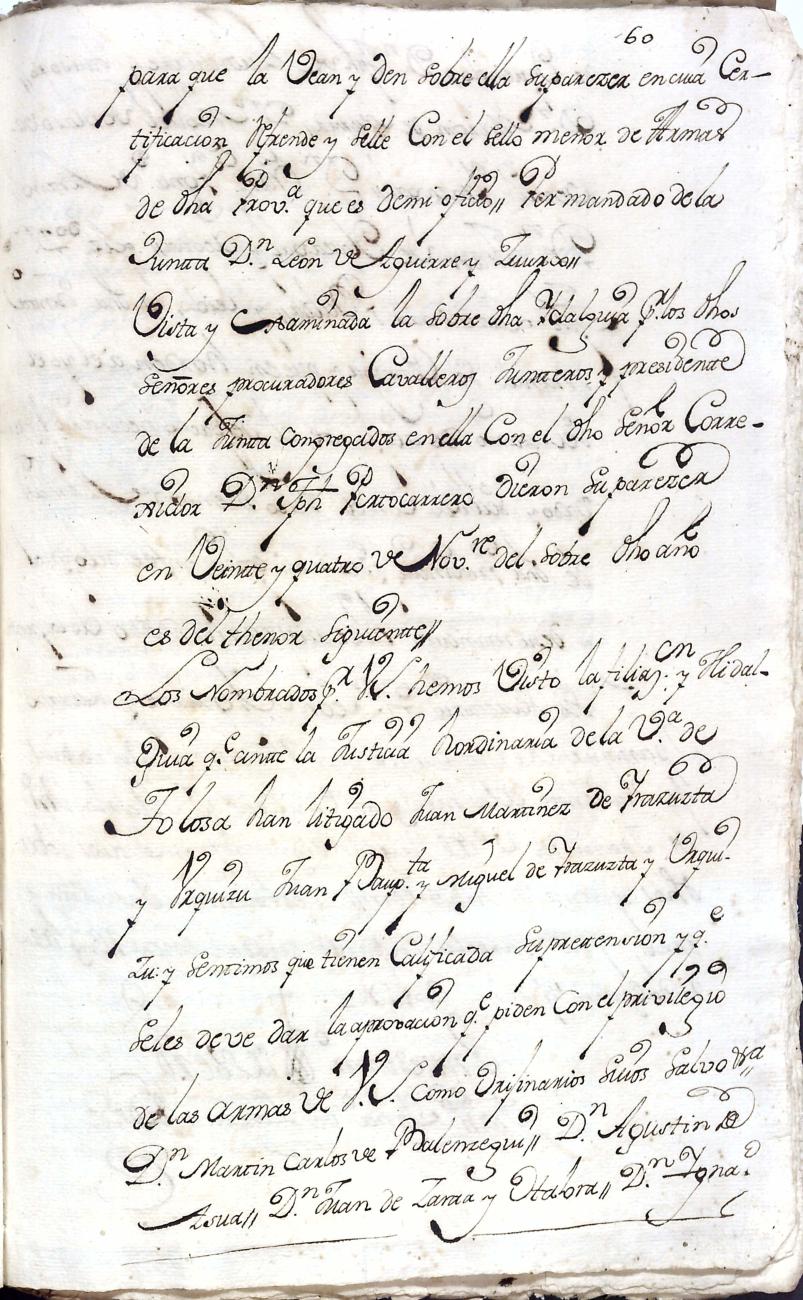 60
para que la Vean y den sobre ella su parezer en cuia Cer-
tificacion Refrende y selle Con el sello menor de Armas
de dha Prov.ª que es de mi oficio,, Por mandado de la
Juntta D.ⁿ Leon de Aguirre y Zuurco,,
Vista y Exsaminada la sobre dha Ydalguia p.ʳ los dhos
señores procuradores Cavalleros Juntteros y presidentte
de la Juntta congregados en ella Con el dho señor Corre-
xidor D.ⁿ Jph Portocarrero dieron su parezer
en Veintte y quatro de Nov.ʳᵉ del sobre dho año
es del thenor siguientte,,
Los Nombrados p.ʳ V.S. hemos Visto la filiaz.ᵒⁿ y Hidal-
guia q.ᵉ antte la Justicia hordinaria de la V.ª de
Tolosa han litigado Juan Martinez de Yrazuzta
y Vrquizu Juan Baup.ᵗᵃ y Miguel de Yrazuzta y Vrqui-
zu: y sentimos que tienen Calificada su pretension y q.ᵉ
se les deve dar la aprovacion q.ᵉ piden Con el privilegio
de las armas de V.S. como Orijinarios suios salvo &ª,,
D.ⁿ Martin Carlos de Balenzegui,, D.ⁿ Agustin de
Asua,, D.ⁿ Juan de Zaraa y Otalora,, D.ⁿ Ygna.º